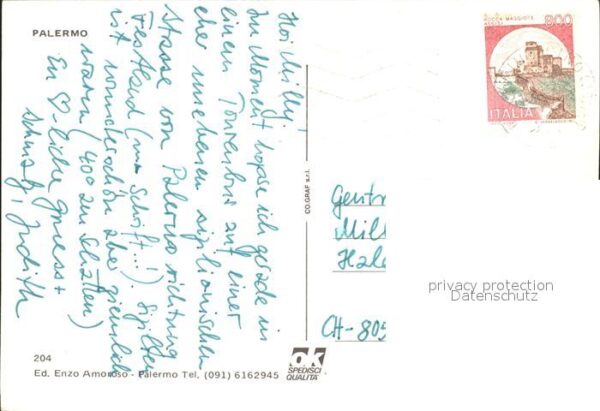 PALERMO
Hoi Milly!
Im Moment hopse ich gerade in
einem Tourenbus auf einer
der unebenen sizilianischen
Strasse von Palermo richtung
Festland (→ Schrift..!). Sizilien
ist wunderschön aber ziemlich
warm (40° am Schatten)
En ♡-liche Gruess +
Schmatz, Judith
204
Ed. Enzo Amoroso - Palermo Tel. (091) 6162945
CO.GRAF s.r.l.
ok
SPEDISCI
QUALITÀ
ROCCA MAGGIORE
800
ITALIA
CH - 805
privacy protection
Datenschutz